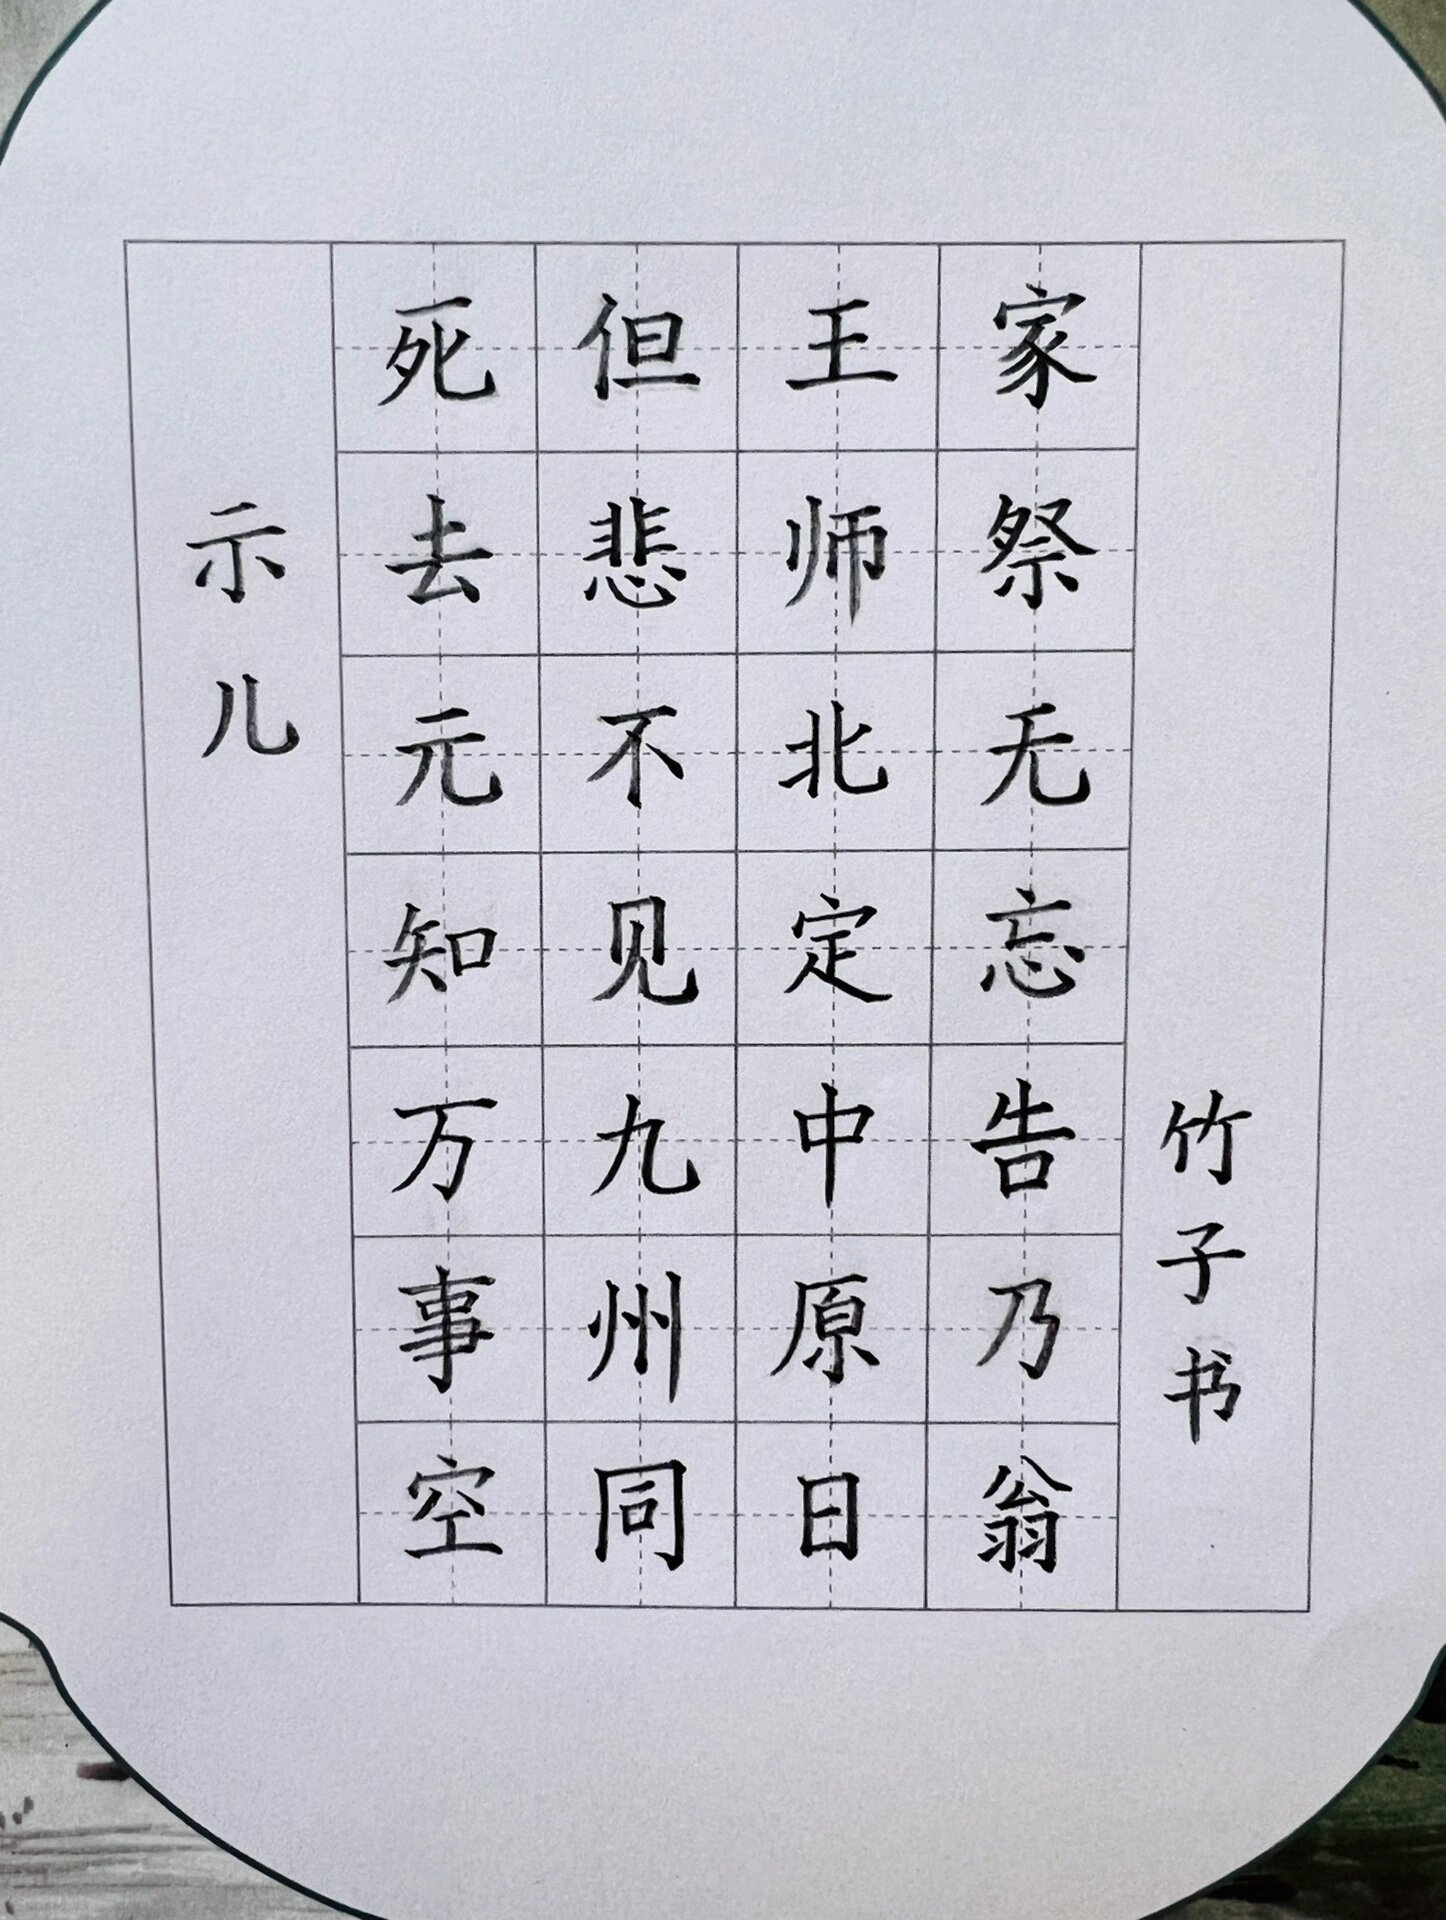 示儿
死去元知万事空
但悲不见九州同
王师北定中原日
家祭无忘告乃翁
竹子书